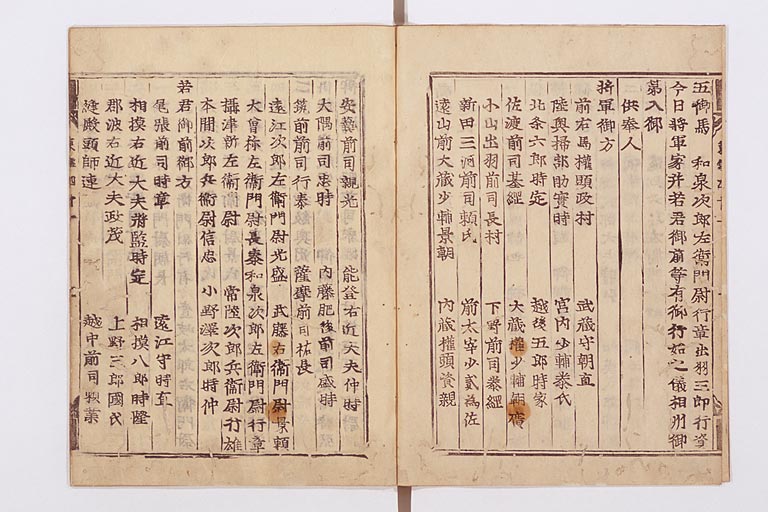 五御馬 和泉次郎左衛門尉行章 出羽三郎行資
今日將軍家并若君御前等有御行始之儀相州御
第入御
供奉人
將軍御方
前右馬權頭政村 武藏守朝直
陸奥掃部助實時 宮内少輔泰氏
北条六郎時定 越後五郎時家
佐渡前司基綱 大藏權少輔朝廣
小山出羽前司長村 下野前司泰綱
新田三河前司頼氏 前太宰少貳為佐
遠山前大藏少輔景朝 内藏權頭資親
安藝前司親光 能登右近大夫仲時
大隅前司忠時 内藤肥後前司盛時
筑前前司行泰 薩摩前司祐長
遠江次郎左衛門尉光盛 武藤右衛門尉景頼
大曾祢左衛門尉長泰 和泉次郎左衛門尉行章
攝津新左衛門尉 常陸次郎兵衛尉行雄
本間次郎兵衛尉信忠 小野澤次郎時仲
若君御前御方
尾張前司時章 遠江守時直
相摸右近大夫將監時定 相摸八郎時隆
那波右近大夫政茂 上野三郎國氏
縫殿頭師連 越中前司頼業